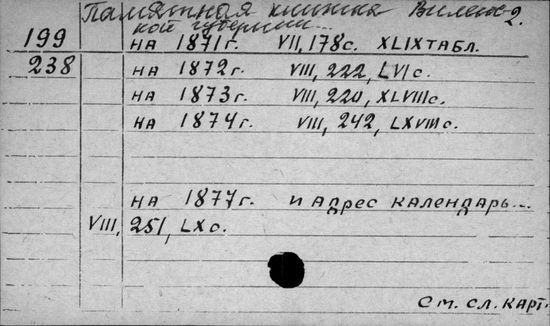 Памятная книжка Виленс- 2.
кой губернии...
199 на 1871г. VII, 178с. XLIX табл.
238 на 1872г. VIII, 222, LVI с.
на 1873г. VIII, 220, XLVIII с.
на 1874г. VIII, 242, LXVIII с.
на 1877г. и адрес календарь...
VIII, 251, LX с.
См. сл. карт.